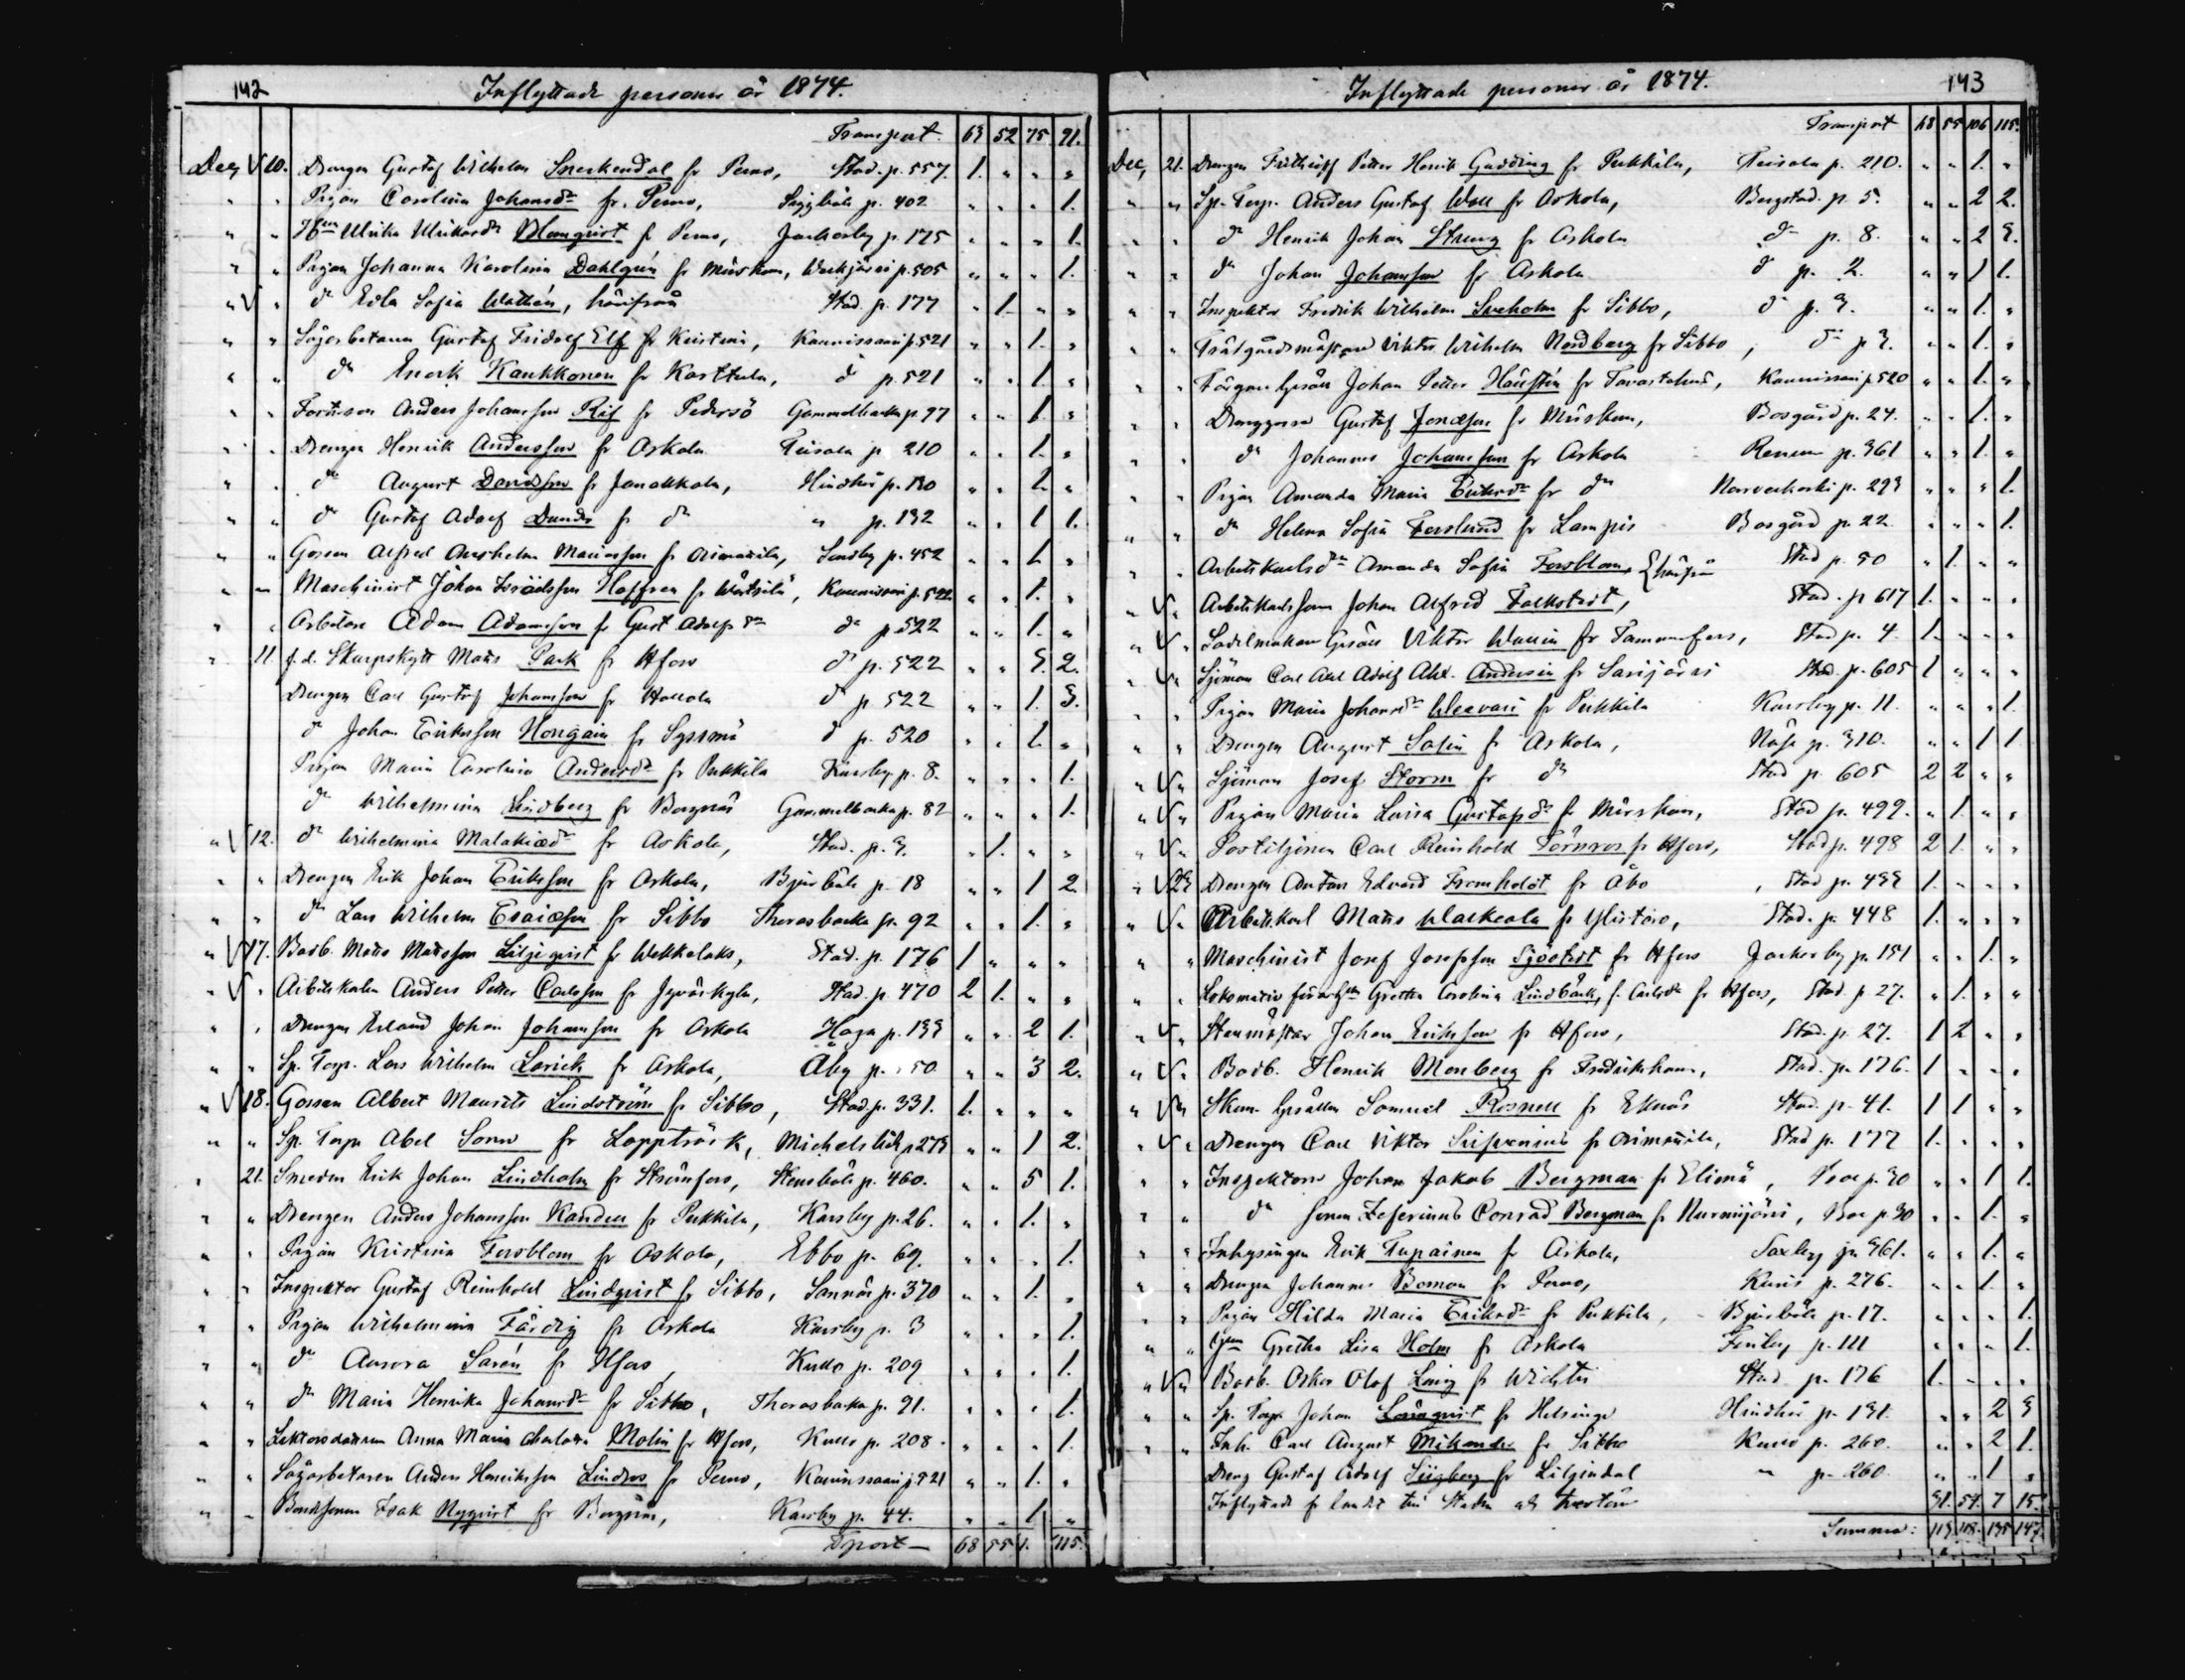 142
Inflyttade personer år 1874.
Transport. 63 52 75 91.
Dec, V 10. Drengen Gustaf Wilhelm Sneckendal fr Perno, Stad. p. 557. 1. " " "
" " Pigan Carolina Johansdr fr. Perno, p. 402 " " " 1.
" " Ulrika Ulriksdr Blomqvist fr Perno, Jackarby p. 175 " " " 1.
" " Pigan Johanna Karolina Dahlgrén fr Mörskom, Weckjärvi p. 505 " " " 1.
" V " do Edla Sofia Wallén, härifrån Stad. p. 177 " 1. " "
" " Sågarbetaren Gustaf Fridolf Elf fr Kristina, Kaunissaari p. 521 " " 1. "
" " do Enock Kaukkonen fr Karttula, do p. 521 " " 1. "
" " Anders Johansson Rif fr Pedersö Gammelbacka p. 97 " " 1. "
" " Drengen Henrik Andersson fr Askola Teisala p. 210 " " 1. "
" " do August Davidson fr Janakkala, Hindhår p. 130 " " 2. "
" " do Gustaf Adolf fr do " p. 132 " " 1 1.
" " Gossen Alfred Anshelm fr Orimattila, p. 452 " " 1. "
" " Maschinist Johan Hoffren fr Wärtsilä, Kaunissaari p. 522 " " 1. "
" " Arbetare Adam Adamsson fr Gust Adolfs do p. 522 " " 1. "
" 11. f. d. Skarpskytt Matts Park fr Hfors do p. 522 " " 5. 2.
Drengen Carl Gustaf Johansson fr Hollola do p. 522 " " 1. 3.
do Johan Eriksson fr Sysmä do p. 520 " " 1. "
Pigan Maria Carolina Andersdr fr Pukkila Karsby p. 8. " " " 1.
do Wilhelmina Lindberg fr Borgnäs Gammelbacka p. 82 " " " 1.
" V 12. do Wilhelmina Malakiasdr fr Askola, Stad. p. 9. " 1. " "
" " Drengen Erik Johan Eriksson fr Askola, Bjurböle p. 18 " " 1 2.
" " do Lars Wilhelm Esaiasson fr Sibbo Thorasbacka p. 92 " " 1. "
" V 17. Matts Mattsson Liljeqvist fr Wekkelaks, Stad. p. 176 1 " " "
" V " Anders Petter Carlsson fr Jyväskylä, Stad. p. 470 2 1. " "
" " Drengen Erland Johan Johansson fr Askola Haga p. 133 " " 2 1.
" " Sp. Torp. Lars Wilhelm fr Askola, Åby p. 50 " " 3 2.
" V 18. Gossen Albert Maurits Lindström fr Sibbo, Stad. p. 331. 1. " " "
" " Sp. Torp Abel fr Lappträsk, Michelsböle p. 273 " " 1 2.
" 21. Smeden Erik Johan Lindholm fr Strömfors, Stensböle p. 460. " " 5 1.
" " Drengen Anders Johansson fr Pukkila, Karsby p. 26. " " 1. "
" " Pigan Kristina Forsblom fr Askola, Ebbo p. 69. " " " 1.
" " Inspektor Gustaf Reinhold Lindqvist fr Sibbo, Sannäs p. 370 " " 1. "
" " Pigan Wilhelmina Färdig fr Askola Karsby p. 3 " " " 1.
" " do Aurora Sarén fr Hfors Kullo p. 209 " " " 1.
" " do Maria Henrika Johansdr fr Sibbo, Thorasbacka p. 91. " " " 1.
" " Anna Maria Charlotta Molin fr Hfors, Kullo p. 208. " " " 1.
" " Sågarbetaren Anders Henriksson Lindros fr Perno, Kaunissaari p. 521 " " 1. "
" " Bondsonen Isak Nyqvist fr Borgnäs, Karsby p. 44. " " 1 "
Tport 68 55 1. 115.
Inflyttade personer år 1874.
143
Transport 68 55 106 115.
Dec, 21. Drengen Petter Henrik Gudding fr Pukkila, Teisala p. 210. " " 1. "
" " Sp. Torp. Anders Gustaf Wall fr Askola, Bergstad. p. 5. " " 2 2.
" " do Henrik Johan Streng fr Askola do p. 8. " " 2 3.
" " do Johan Johansson fr Askola do p. 2. " " 1 1.
" " Inspektor Fredrik Wilhelm Sveholm fr Sibbo, do p. 3. " " 1. "
" " Viktor Wilhelm Nordberg fr Sibbo, do p. 3. " " 1. "
" " Johan Petter fr Tavastehus, Kaunissaari p. 520 " " 1. "
" " Drenggossen Gustaf Jonasson fr Mörskom, Bosgård p. 24. " " 1. "
" " do Johannes Johansson fr Askola Renum p. 361 " " 1. "
" " Pigan Amanda Maria Eriksdr fr do Norrveckoski p. 293 " " " 1.
" " do Helena Sofia Forslund fr Lampis Bosgård p. 22 " " " 1.
" " Arbetskarlsdr Amanda Sofia Forsblom, härifrån Stad p. 50 " 1. " "
" V " Johan Alfred Falkstedt, Stad. p. 617 1. " " "
" V " Sadelmakare Gesäll Viktor Wallin fr Tammerfors, Stad p. 4. 1. " " "
" V " Sjöman Carl Axel Adolf Alex. Andersin fr Saarijärvi Stad. p. 605 1 " " "
" " Pigan Maria Johansdr fr Pukkila Karsby p. 11. " " " 1.
" " Drengen August Salin fr Askola, Näse p. 310. " " 1 1
" V " Sjöman Josef Storm fr do Stad p. 605 2 2 " "
" V " Pigan Maria Lovisa Gustafsdr fr Mörskom, Stad p. 499. " 1. " "
" V " Postiljonen Carl Reinhold Törnroos fr Hfors, Stad p. 498 2 1. " "
" V 23 Drengen Anton Edvard Fromholdt fr Åbo, Stad p. 1. " " "
" V " Arbetskarl Matts fr Ylistaro, Stad. p. 448 1. " " "
" " Maschinist Josef Josefsson Sjöstedt fr Hfors Jackarby p. 151 " " 1. "
" " Gretha Carolina Lindbäck, f. Carlsdr fr Hfors, Stad. p. 27. " 1. " "
" V " Johan Eriksson fr Hfors, Stad. p. 27. 1 2 " "
" V " Henrik Monberg fr Fredrikshamn, Stad. p. 176. 1 " " "
" V " Gesällen Samuel Rosnell fr Ekenäs Stad. p. 41. 1 1 " "
" V " Drengen Carl Viktor fr Orimattila, Stad p. 177 1. " " "
" " Inspektorn Johan Jakob Bergman fr Elimä, p. 30 " " 1 1.
" " do sonen Zeferinus Conrad Bergman fr Nurmijärvi, p. 30 " " 1. "
" " Inhysingen Erik Tupainen fr Askola, Saxby p. 361. " " 1. "
" " Drengen Johannes Boman fr Perno, Kuris p. 276. " " 1. "
" " Pigan Hilda Maria Eriksdr fr Pukkila, Bjurböle p. 17. " " " 1.
" " Gretha Lisa Holm fr Askola Finnby p. 111 " " " 1.
" V " Oskar Olof fr Wichtis Stad p. 176 1. " " "
" " Sp. Torp Johan Lönnqvist fr Helsinge Hindhår p. 131. " " 2 3
" " Inh. Carl August Mikander fr Sibbo Kullo p. 260. " " 2 1.
Dreng Gustaf Adolf fr Liljendal " p. 260. " " 1 "
Inflyttade fr landet till staden och tvertom 31. 54. 7 15.
Summa: 119. 118. 135 147.